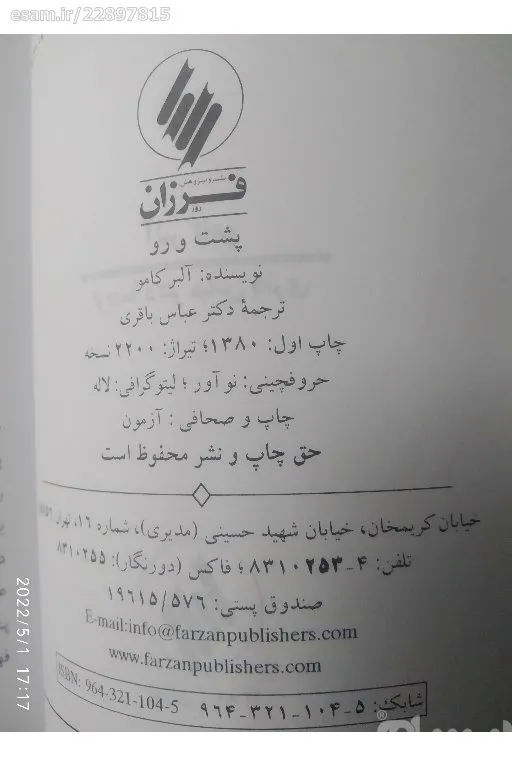 esam.ir/22897815
نشر و پژوهش
فرزان
روز
پشت و رو
نویسنده: آلبر کامو
ترجمهٔ دکتر عباس باقری
چاپ اول: ۱۳۸۰؛ تیراژ: ۲۲۰۰ نسخه
حروفچینی: نوآور؛ لیتوگرافی: لاله
چاپ و صحافی: آزمون
حق چاپ و نشر محفوظ است
خیابان کریمخان، خیابان شهید حسینی (مدیری)، شماره ۱۶، تهران
تلفن: ۴-۸۳۱۰۲۵۳؛ فاکس (دورنگار): ۸۳۱۰۲۵۵
صندوق پستی: ۱۹۶۱۵/۵۷۶
E-mail:info@farzanpublishers.com
www.farzanpublishers.com
ISBN: 964-321-104-5 شابک: ۵-۱۰۴-۳۲۱-۹۶۴
2022/5/1 17:17